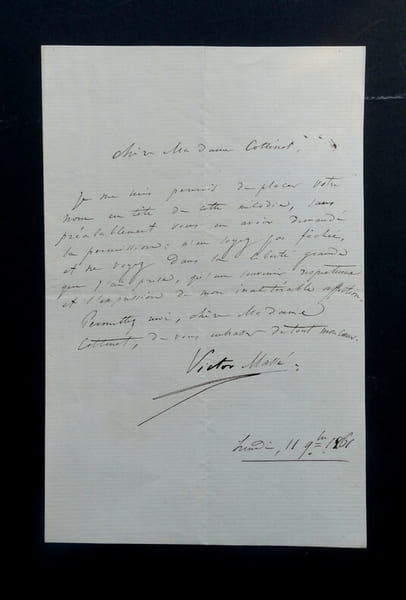 chère Madame Cottinet,
Je me suis permis de placer votre
nom en tête de cette mélodie, sans
préalablement vous en avoir demandé
la permission: n'en soyez pas fâchée,
et ne voyez dans la liberté grande
que j'ai prise, qu'un souvenir respectueux
et l'expression de mon inaltérable affection.
Permettez moi, chère Madame
Cottinet, de vous embrasser de tout mon cœur.
Victor Massé.
Lundi, 11 9bre 1861